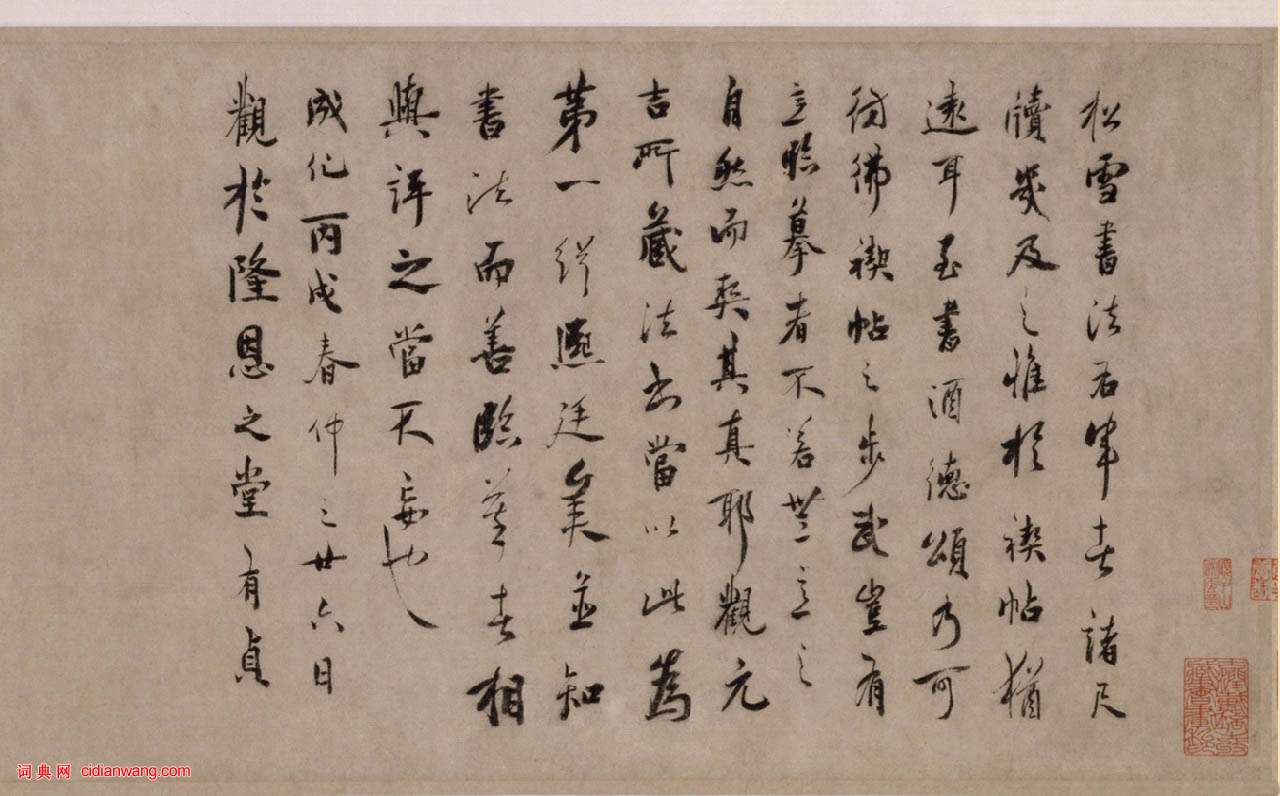 松雪書法右軍者諸尺
牘幾及之惟於禊帖猶
遠耳至書酒德頌乃可
彷彿禊帖之步武豈有
意臨摹者不若無意之
自然而契其真耶觀元
吉所藏法書當以此為
第一繹熙廷美並知
書法而善臨摹者相
與評之當不妄也
成化丙戌春仲之廿六日
觀於隆恩之堂 有貞
词典网 cidianwang.com